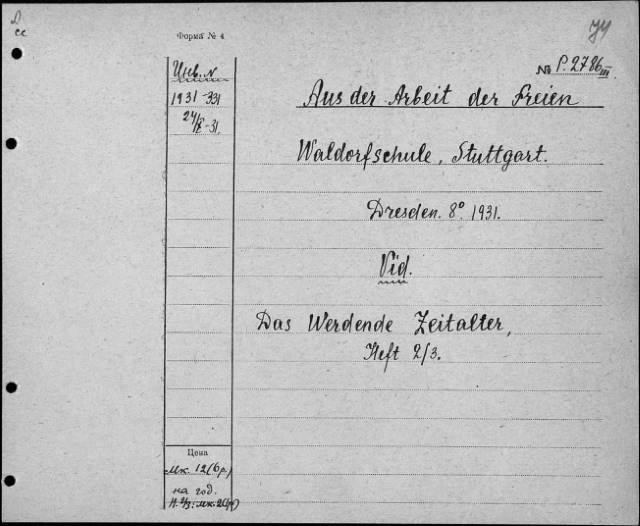 Форма № 4
74
№ P. 2786 III
Инв. N
1931-331
24/X-31.
Aus der Arbeit der Freien
Waldorfschule, Stuttgart.
Dresden. 8° 1931.
Vid.
Das Werdende Zeitalter,
Heft 2/3.
Цена
Мк. 12 (6 р)
на год.